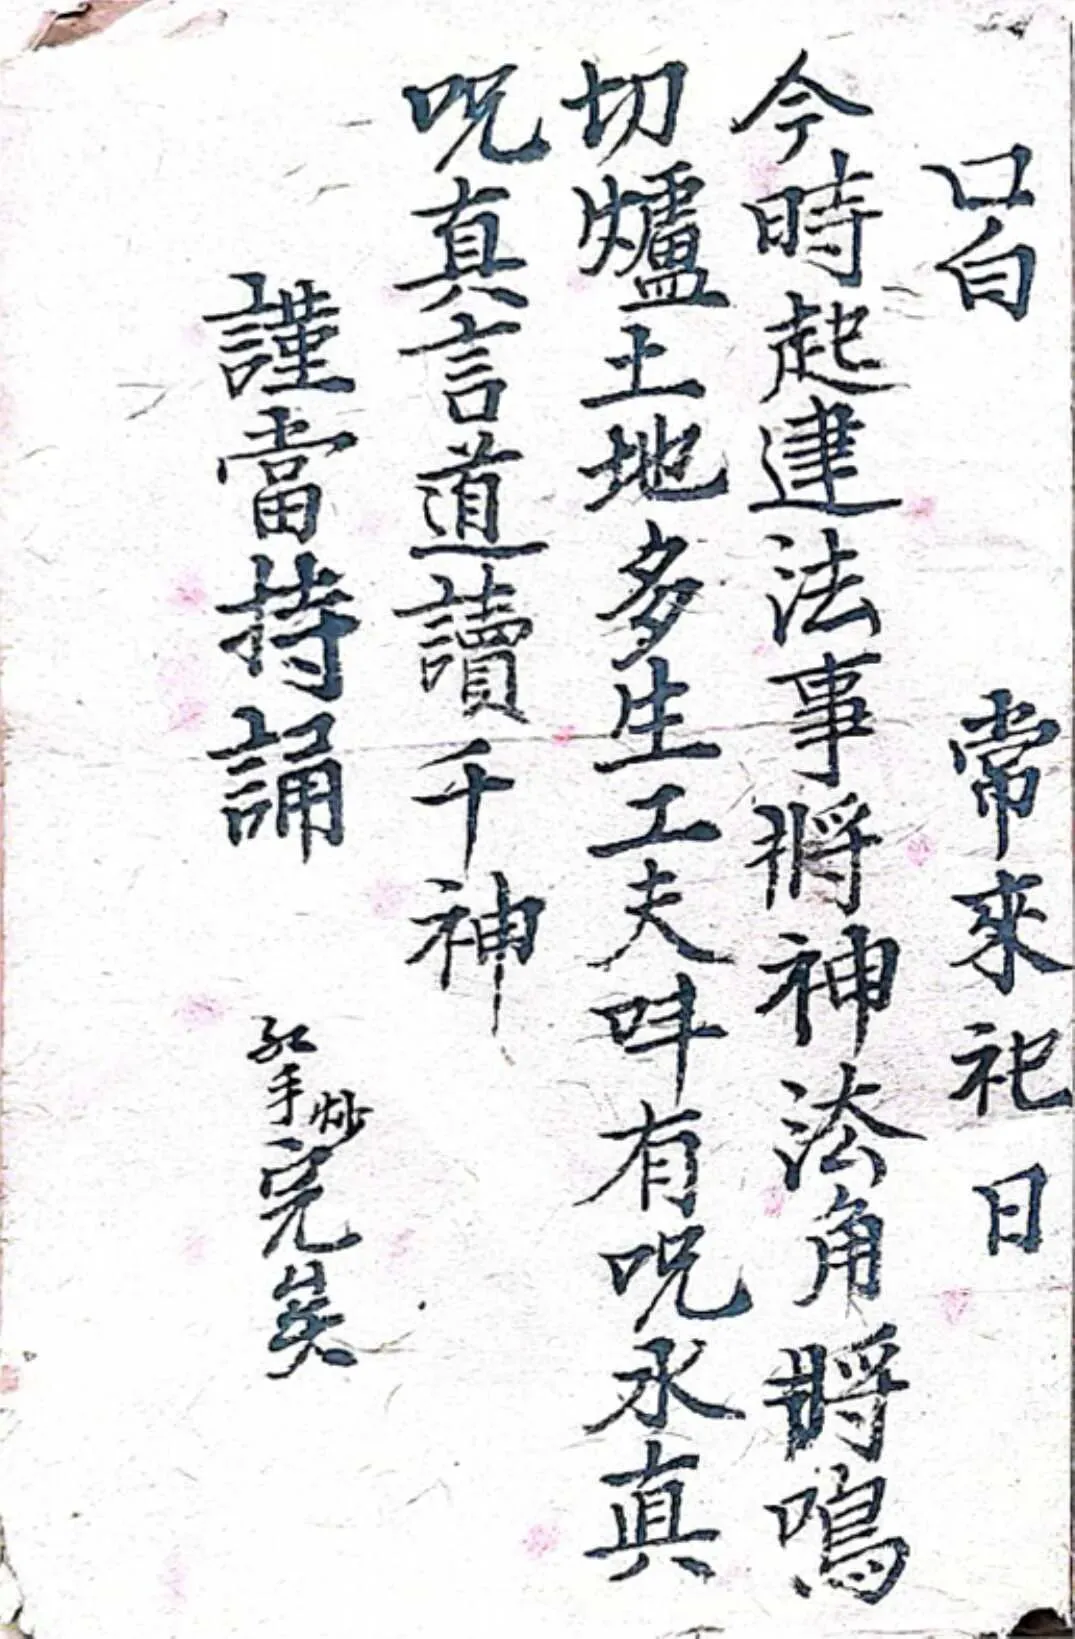 口白 常來祀日
今時起建法事将神法角將鳴
切爐土地多生工夫吽有呪水真
呪真言道讀千神
謹當持誦
手炒完矣